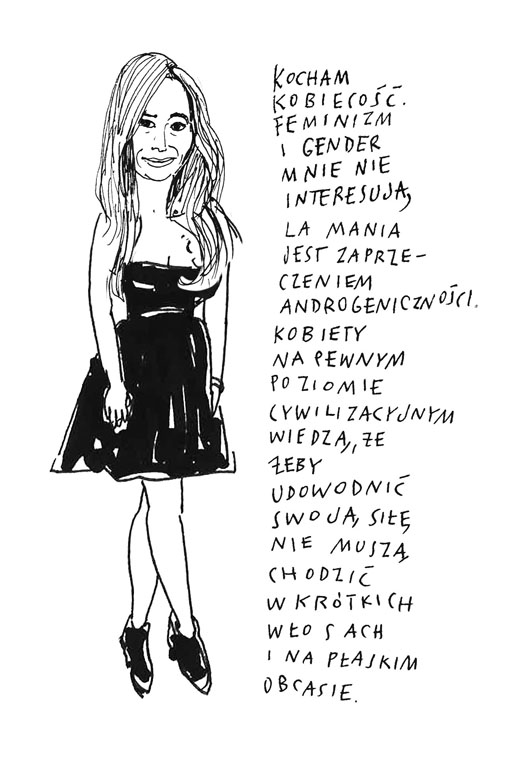 KOCHAM
KOBIECOŚĆ.
FEMINIZM
I GENDER
MNIE NIE
INTERESUJĄ,
LA MANIA
JEST ZAPRZE-
CZENIEM
ANDROGENICZNOŚCI.
KOBIETY
NA PEWNYM
POZIOMIE
CYWILIZACYJNYM
WIEDZĄ, ŻE
ŻEBY
UDOWODNIĆ
SWOJĄ SIŁĘ
NIE MUSZĄ
CHODZIĆ
W KRÓTKICH
WŁOSACH
I NA PŁASKIM
OBCASIE.